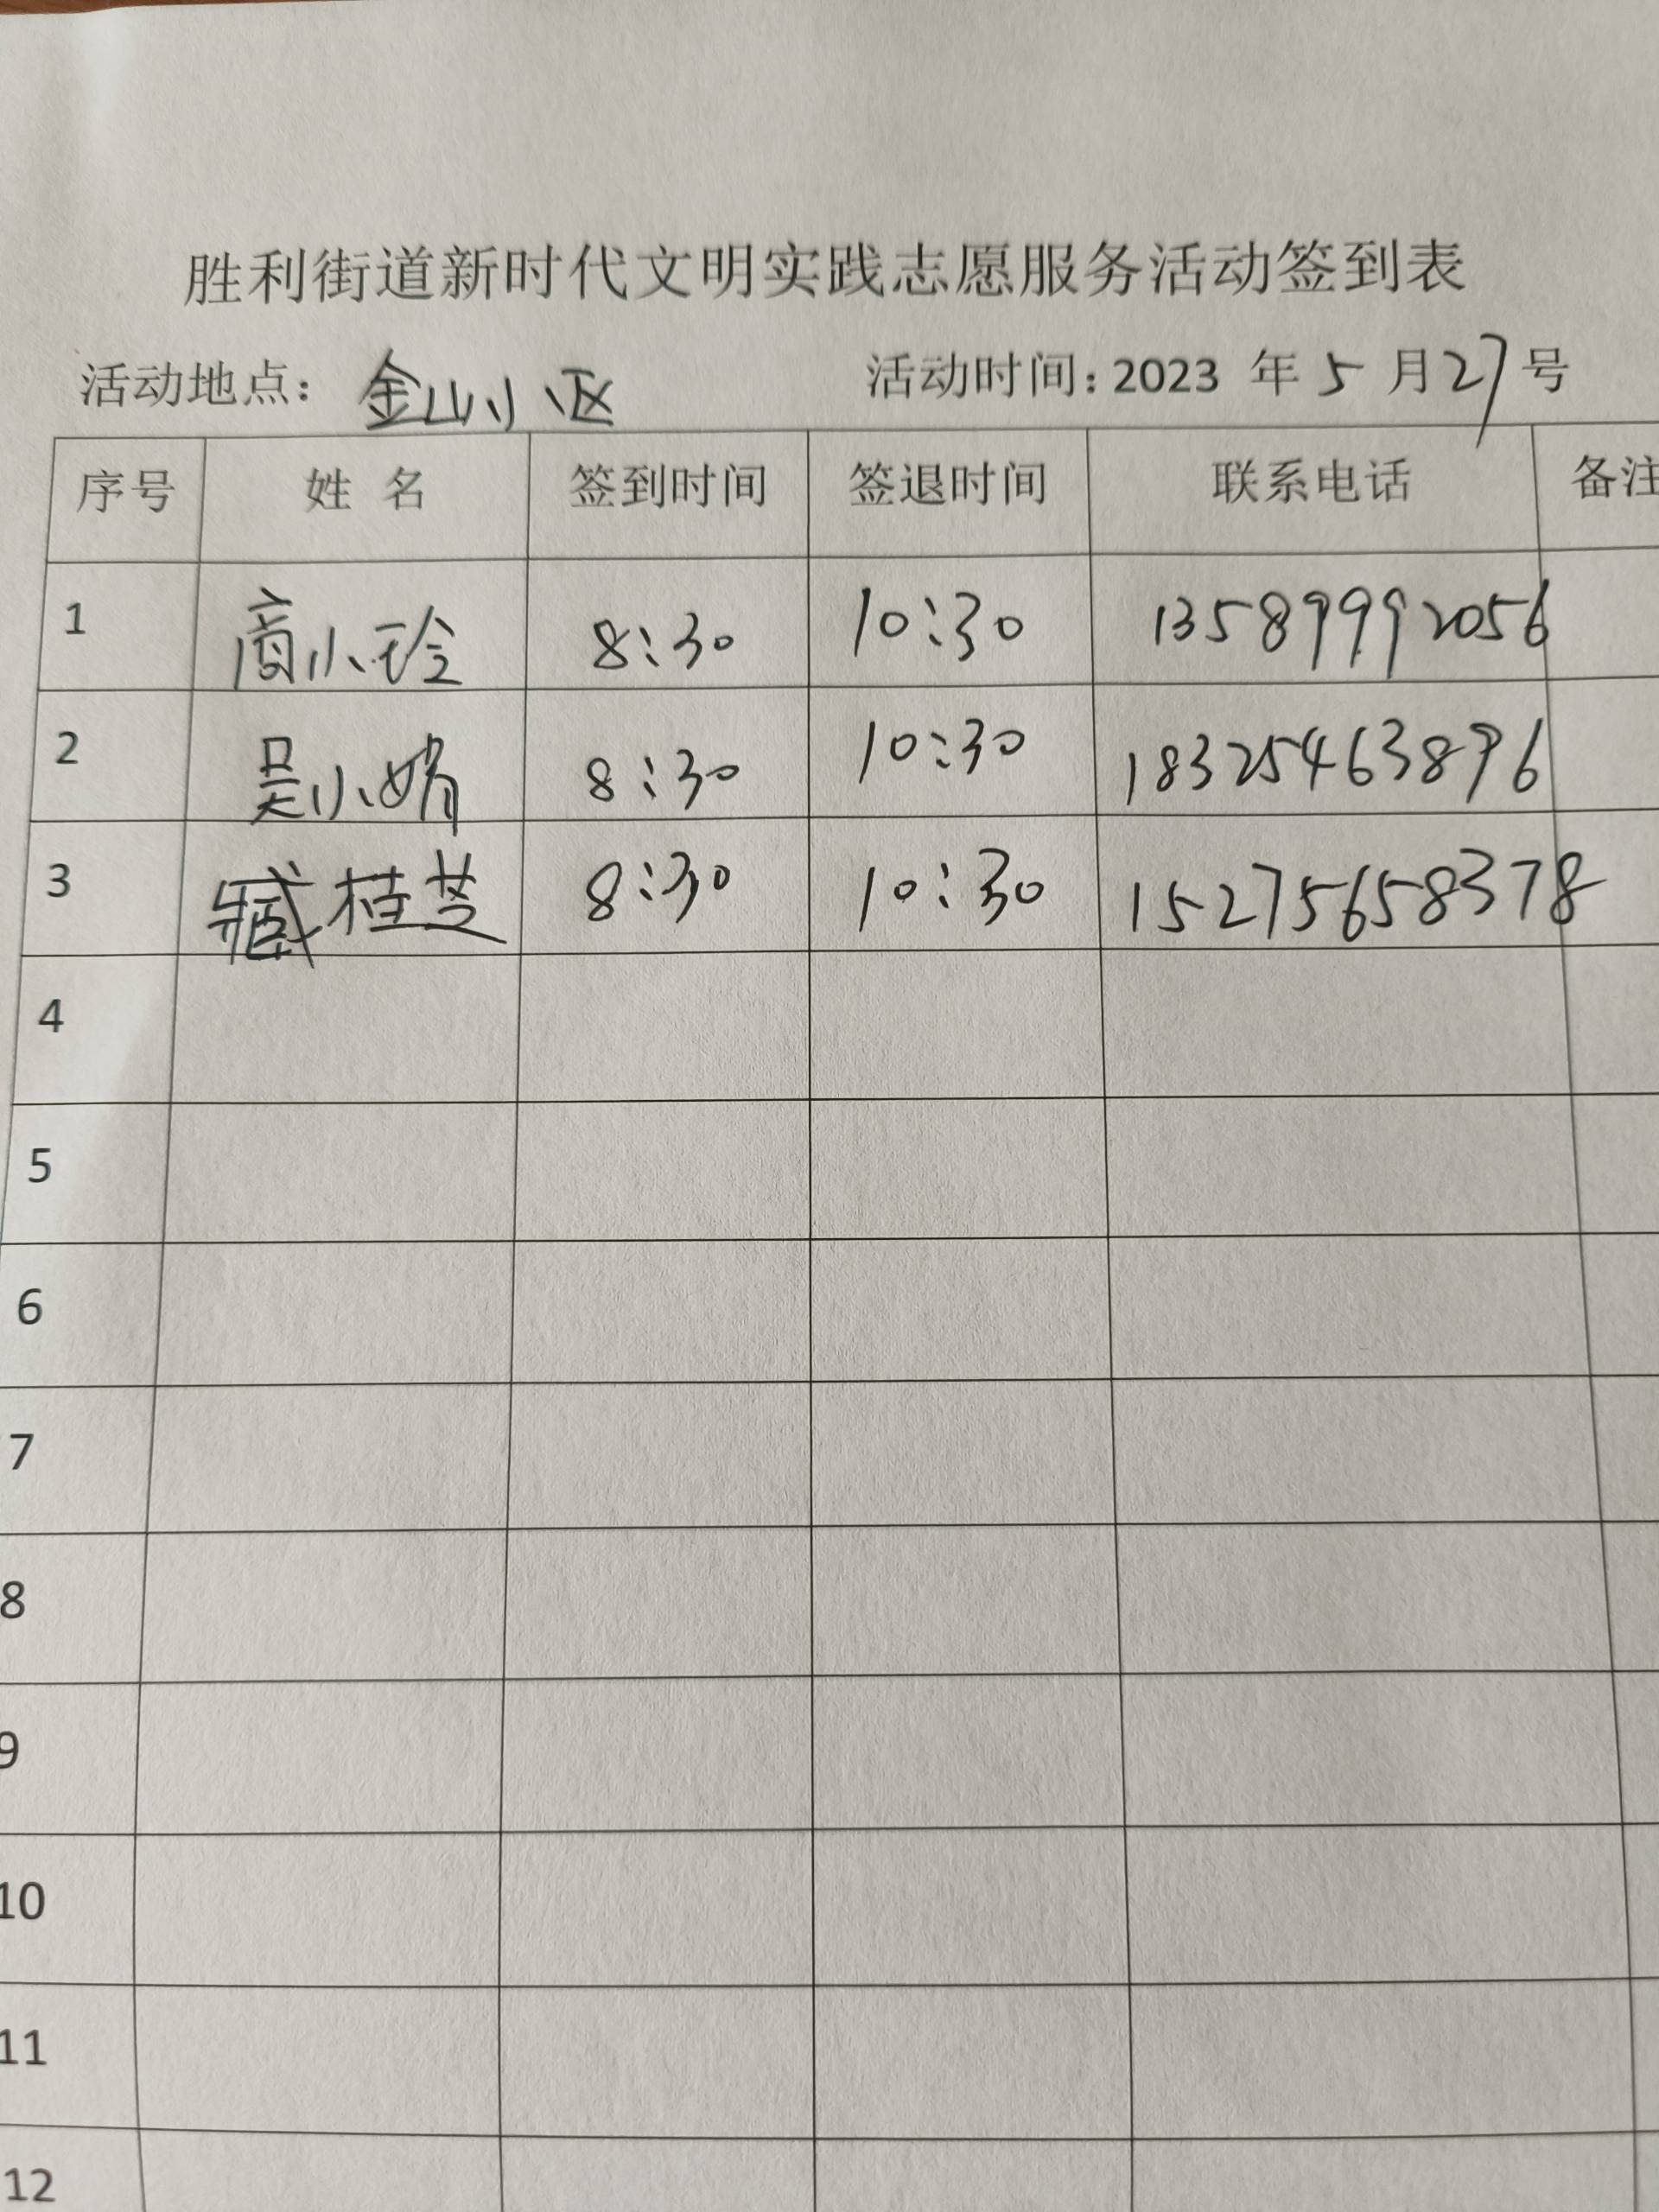 胜利街道新时代文明实践志愿服务活动签到表
活动地点： 金山小区 活动时间：2023 年 5 月 27 号
序号 姓 名 签到时间 签退时间 联系电话 备注
1 商小玲 8:30 10:30 13589992056
2 吴小娇 8:30 10:30 18325463896
3 臧桂芝 8:30 10:30 15275658378
4
5
6
7
8
9
10
11
12